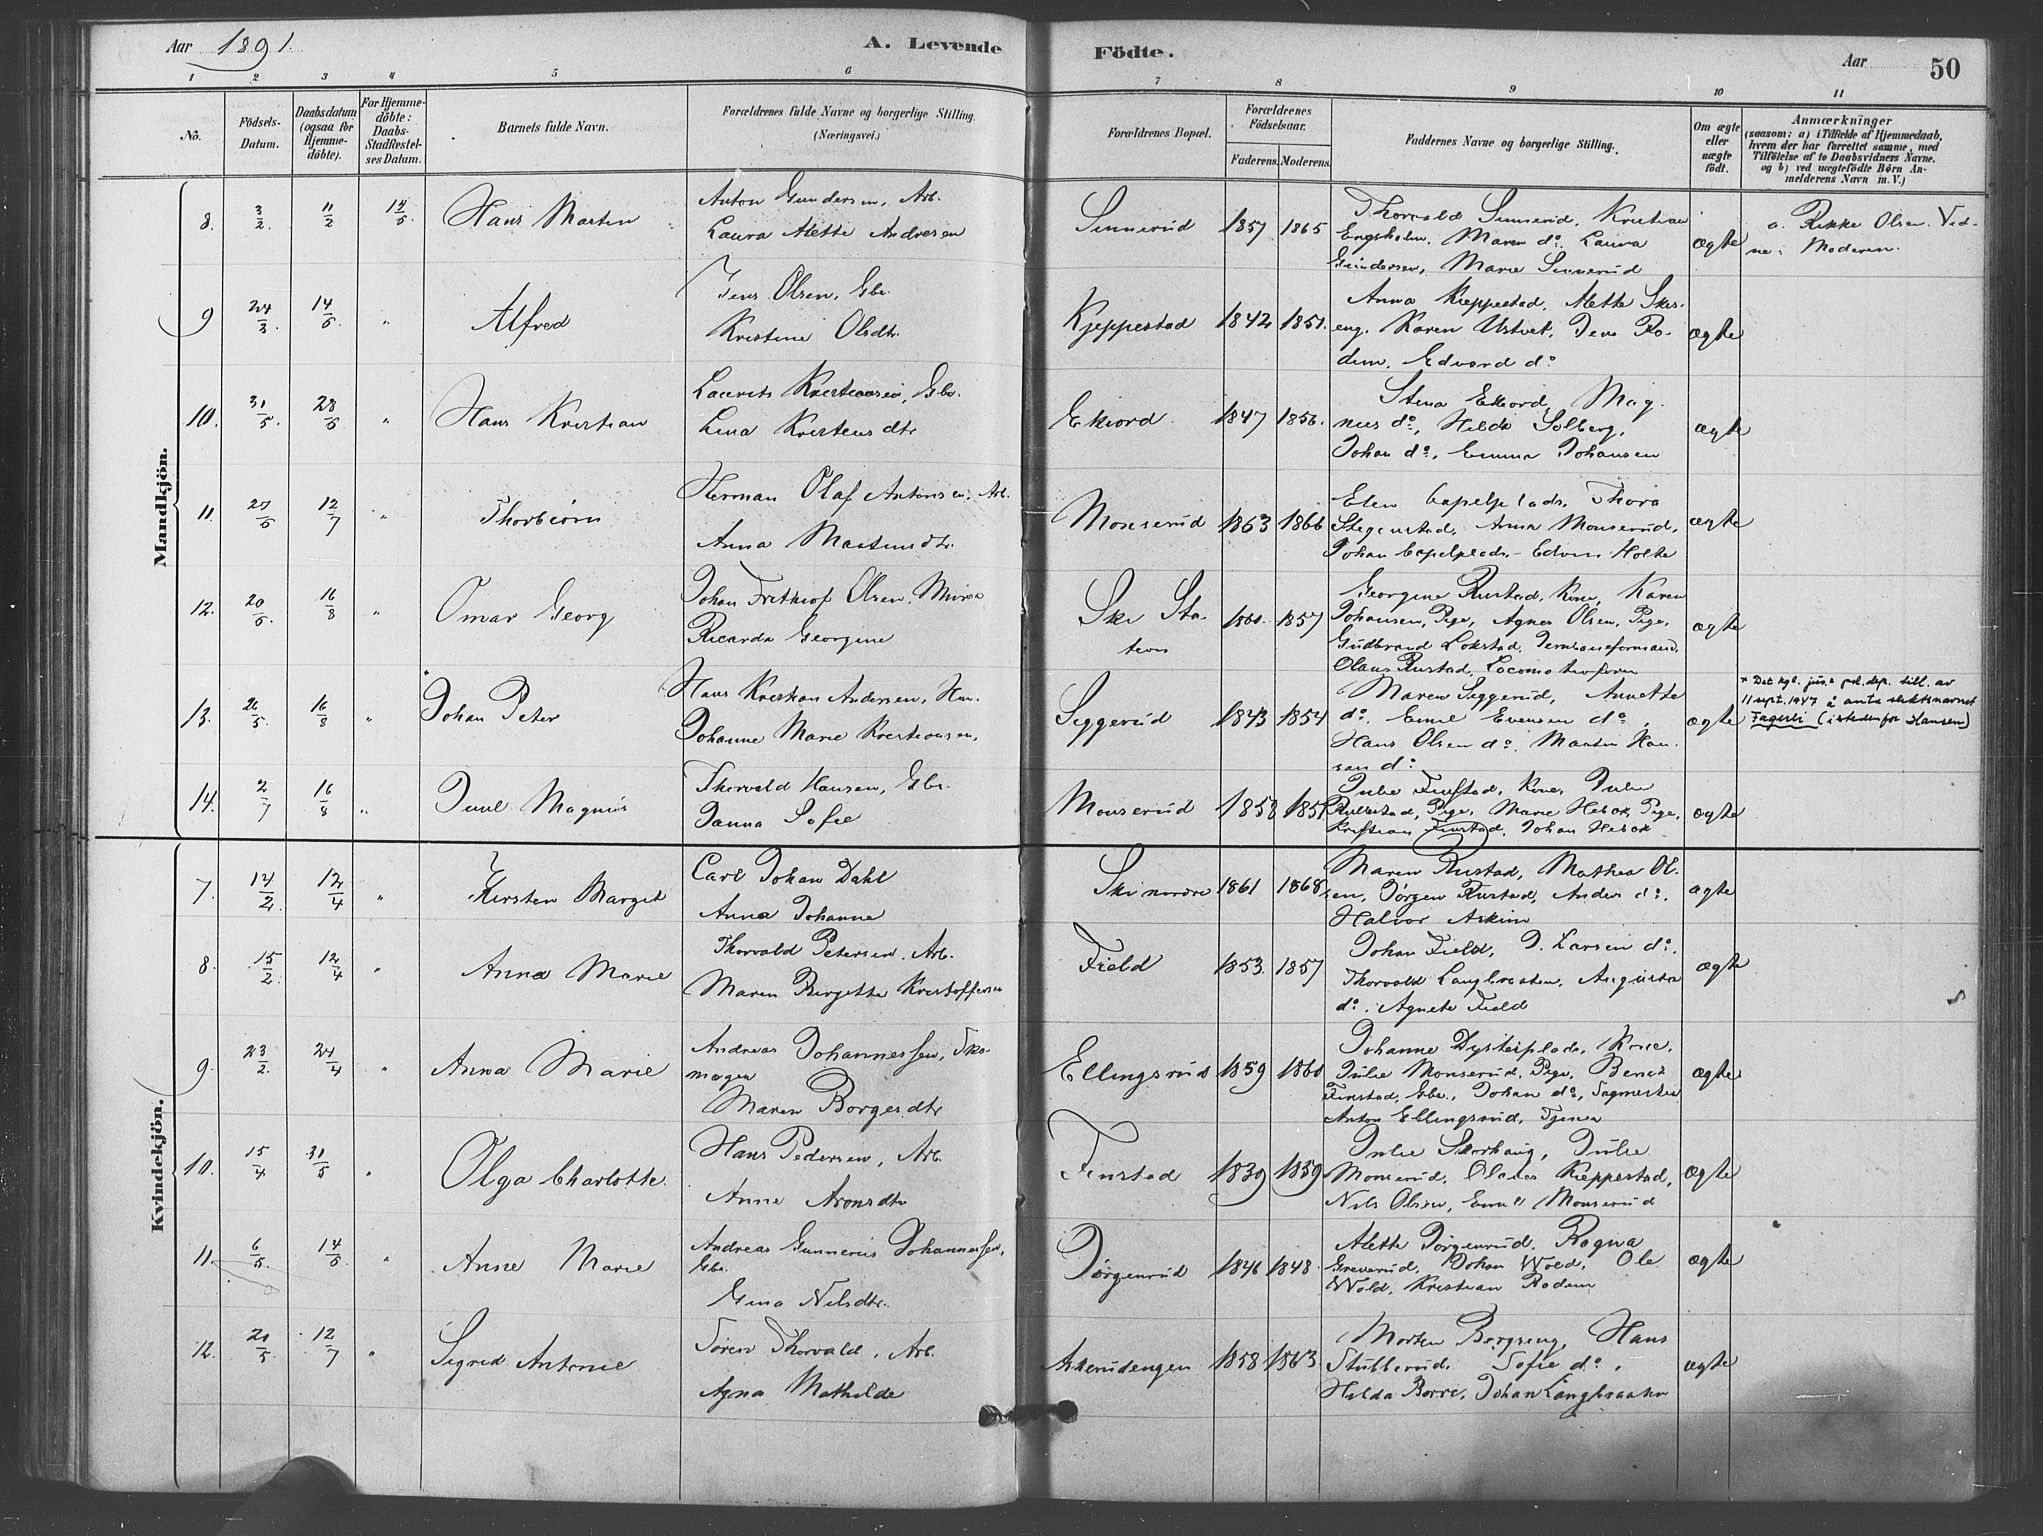 Aar 1891. A. Levende Födte. Aar 50
1 2 3 4 5 6 7 8 9 10 11
No.
Födsels-Datum.
Daabsdatum (ogsaa for Hjemme-döbte).
For Hjemme-döbte: Daabs-Stadfæstel-ses Datum.
Barnets fulde Navn.
Forældrenes fulde Navne og borgerlige Stilling. (Næringsvei.)
Forældrenes Bopæl.
Forældrenes Födselsaar.
Faderens. Moderens.
Faddernes Navne og borgerlige Stilling.
Om ægte eller uægte födt.
Anmærkninger
(saasom: a) i Tilfælde af Hjemmedaab,
hvem der har forrettet samme, med
Tilföielse af to Daabsvidners Navne.
og b) ved uægtefödte Börn An-
melderens Navn m. V.)
Mandkjön.
8. 3/2. 11/2 14/5 Hans Martin
Anton Gundersen, Arb.
Laura Alette Andresen
Sinnerud 1857 1865
Thorvald Sinnerud, Kristian
Engsholm, Maren do. Laura
Gundersen, Marie Sinnerud
ægte
a. Rikke Olsen. Vid-
ne: Moderen.
9 24/3. 14/6. " Alfred
Jens Olsen, Gbr.
Kristine Olsdtr.
Kjeppestad 1842 1851.
Anna Kjeppestad, Alette Skis-
eng, Karen Ustvet, Jens Ro-
dem, Edvard do
ægte
10. 31/5. 28/6 " Hans Kristian
Laurits Kristiansen, Gbr.
Lina Kristensdtr
Ekeord 1847 1856.
Stina Ekeord, Mag-
nus do, Hilda Solberg,
Johan do, Emma Johansen
ægte
11. 27/5 12/7 " Thorbiörn
Herman Olaf Antonsen, Arb.
Anna Martinsdtr.
Monserud 1863 1866
Elen Capelplads, Thora
Stegenstad, Anna Monserud,
Johan Capelplads, Edvin Holte
ægte
12. 20/6. 16/8 " Omar Georg
Johan Frithiof Olsen, Murer
Ricarda Georgine
Ski Sta-
tion 1860. 1857
Georgine Rustad, Kone, Karen
Johansen, Pige, Agnes Olsen, Pige,
Gudbrand Lökstad, Jernbaneformand,
Olaus Rustad, Locomotivförer
ægte
13. 26/5. 16/8 " * Johan Peter
Hans Kristian Andersen, Hm.
Johanne Marie Kristiansen,
Siggerud 1843 1854
Maren Siggerud, Annette
do. Emil Evensen do,
Hans Olsen do. Martin Han-
sen do
ægte
* Det kgl. jus. & pol. dep. till. av
11 sept. 1947 å anta slektsnavnet
Fagerli (istedenfor Hansen)
14. 2/7 16/8 " Juul Magnus
Thorvald Hansen, Gbr.
Janna Sofie
Monserud 1858
Julie Finstad, Kone, Julie
Rullestad, Pige, Marie Hebæk, Pige,
Kristian Finstad, Johan Hebæk
ægte
Kvindekjön.
7. 14/2. 12/4 " Kirsten Margit
Carl Johan Dahl
Anna Johanne
Ski nordre 1861 1868
Maren Rustad, Mathea Ol-
sen, Jörgen Rustad, Anders do,
Halvor Askim
ægte
8. 15/2. 12/4 " Anna Marie
Thorvald Petersen, Arb.
Maren Birgitte Kristoffersen
Field 1853. 1857
Johan Field, J. Larsen do.
Thorvald Langbraaten, Augusta
do. Agnete Field
ægte
9. 23/2. 24/4 " Anna Marie
Andreas Johannessen, Sko-
mager
Maren Borgersdtr
Ellingsrud 1859 1860
Johanne Dysterplads, Kone,
Julie Monserud, Pige, Bernt
Finstad, Gbr., Johan do, Sagmester
Anton Ellingsrud, Tjener
ægte
10. 15/4 31/5 " Olga Charlotte.
Hans Pedersen, Arb.
Anne Aronsdtr
Finstad 1839 1859
Julie Skorhaug, Julie
Monserud, Olaus Kieppestad,
Nils Olsen, Emil Monserud
ægte
11. 6/5. 14/6 " Anne Marie
Andreas Gunnerius Johannessen,
Gbr.
Gina Nilsdtr.
Jörgenrud 1846 1848.
Alette Jörgenrud, Ragna
Greverud, Johan Wold, Ole
Wold, Kristian Rodem
ægte
12. 20/5. 12/7 " Sigrid Antonie
Sören Thorvald, Arb.
Agna Mathilde
Askerudengen 1858 1863.
Morten Bergseng, Hans
Stubberud, Sofie do,
Hilda Borre, Johan Langbraaten
ægte